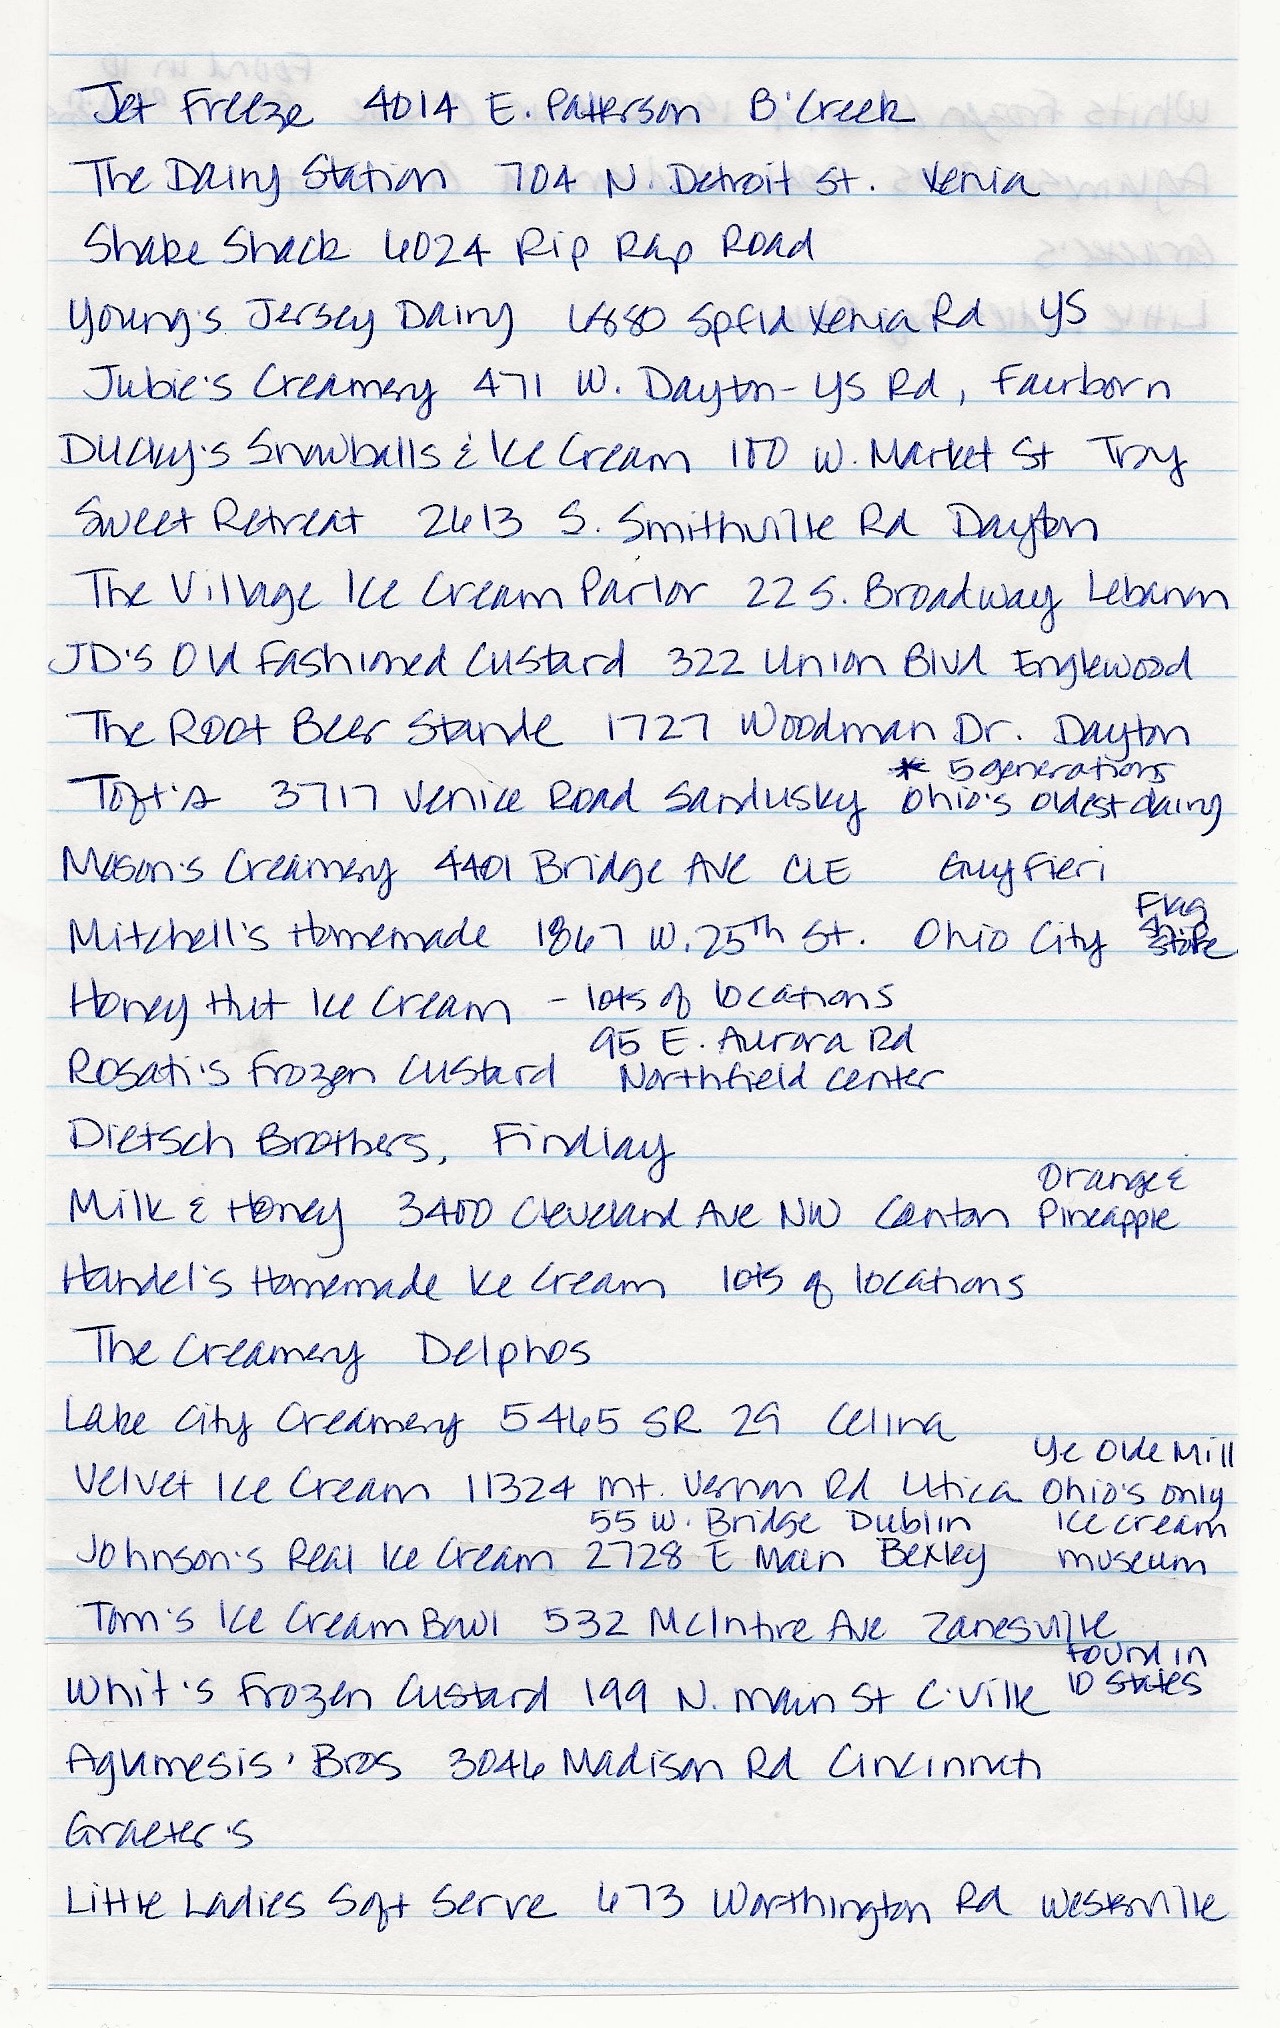 Jet Freeze 4014 E. Patterson B'Creek
The Dairy Station 704 N. Detroit St. Xenia
Shake Shack 6024 Rip Rap Road
Young's Jersey Dairy 6880 Spfld Xenia Rd YS
Jubie's Creamery 471 W. Dayton-YS Rd, Fairborn
Ducky's Snowballs & Ice Cream 100 W. Market St Troy
Sweet Retreat 2613 S. Smithville Rd Dayton
The Village Ice Cream Parlor 22 S. Broadway Lebanon
JD's Old Fashioned Custard 322 Union Blvd Englewood
The Root Beer Stande 1727 Woodman Dr. Dayton
* 5 generations
Toft's 3717 Venice Road Sandusky Ohio's oldest dairy
Mason's Creamery 4401 Bridge Ave CLE Guy Fieri
Mitchell's Homemade 1867 W. 25th St. Ohio City Flag ship store
Honey Hut Ice Cream - lots of locations
95 E. Aurora Rd
Rosati's Frozen Custard Northfield Center
Dietsch Brothers, Findlay
Orange &
Milk & Honey 3400 Cleveland Ave NW Canton Pineapple
Handel's Homemade Ice Cream lots of locations
The Creamery Delphos
Lake City Creamery 5465 SR 29 Celina
Ye Olde Mill
Velvet Ice Cream 11324 Mt. Vernon Rd Utica Ohio's only
55 W. Bridge Dublin Ice cream
Johnson's Real Ice Cream 2728 E Main Bexley museum
Tom's Ice Cream Bowl 532 McIntire Ave Zanesville
found in
Whit's Frozen Custard 199 N. Main St C'ville 10 states
Aglamesis' Bros 3046 Madison Rd Cincinnati
Graeter's
Little Ladies Soft Serve 673 Worthington Rd Westerville